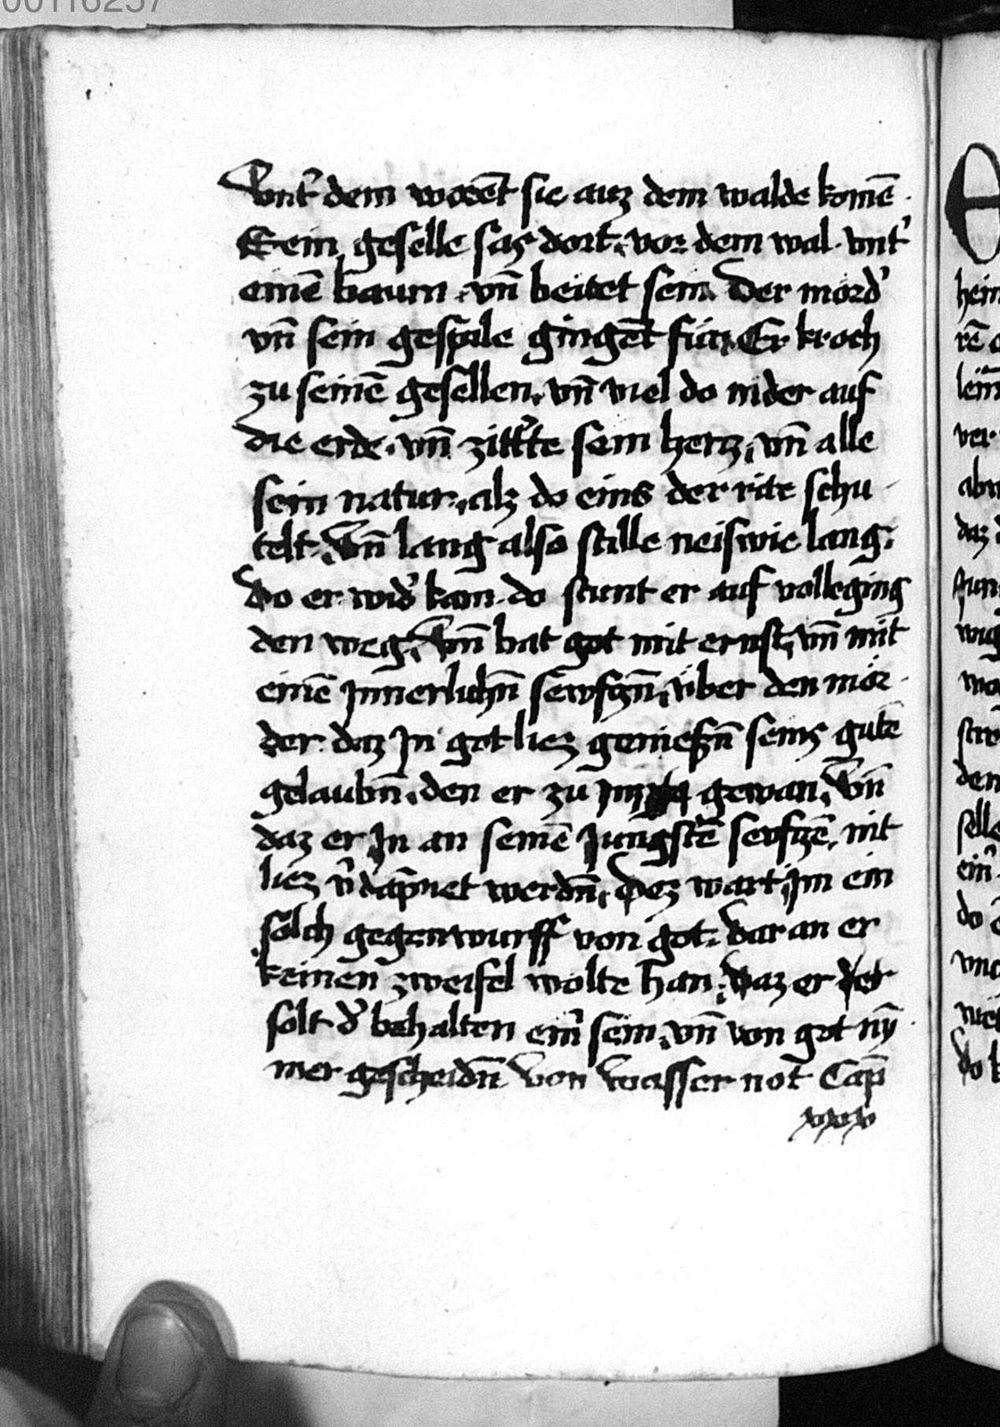 00116257
Vnt᷑ dem wordēt sie auz dem walde komē .
Sein geselle sas dort . vor dem wal . vnt᷑
einē baum . vn̄ beitet sein . Der mord᷑
vn̄ sein gespile gingēt für . Er kroch
zu seinē gesellen . vn̄ viel do nider auf
die erde . vn̄ zitt᷑te sein hercz . vn̄ alle
sein natur . alz do eins der rite schu
telt . Vn̄ lang also stille neiswie lang .
Do er wid᷑ kam . do stunt er auf volleging
den weg . Vn̄ bat got mit ernst . vn̄ mit
einē Jnnerlichn̄ sewfczn̄ . v̈ber den mör
der . daz Jn got liez genieszn̄ seins gutē
gelaubn̄ . den er zu gewan . Vn̄
daz er Jn an seinē Jungstē sewfczē . nit
liez v᷑dāpnet werdn̄ . Dez wart Jm ein
sölch gegenwurff von got . Dar an er
keinen zweifel wolte han . Daz er der
solt d᷑ behalten ein᷑ sein . vn̄ von got nȳ
mer gescheidn̄ Von wasser not Cap̄
xxv